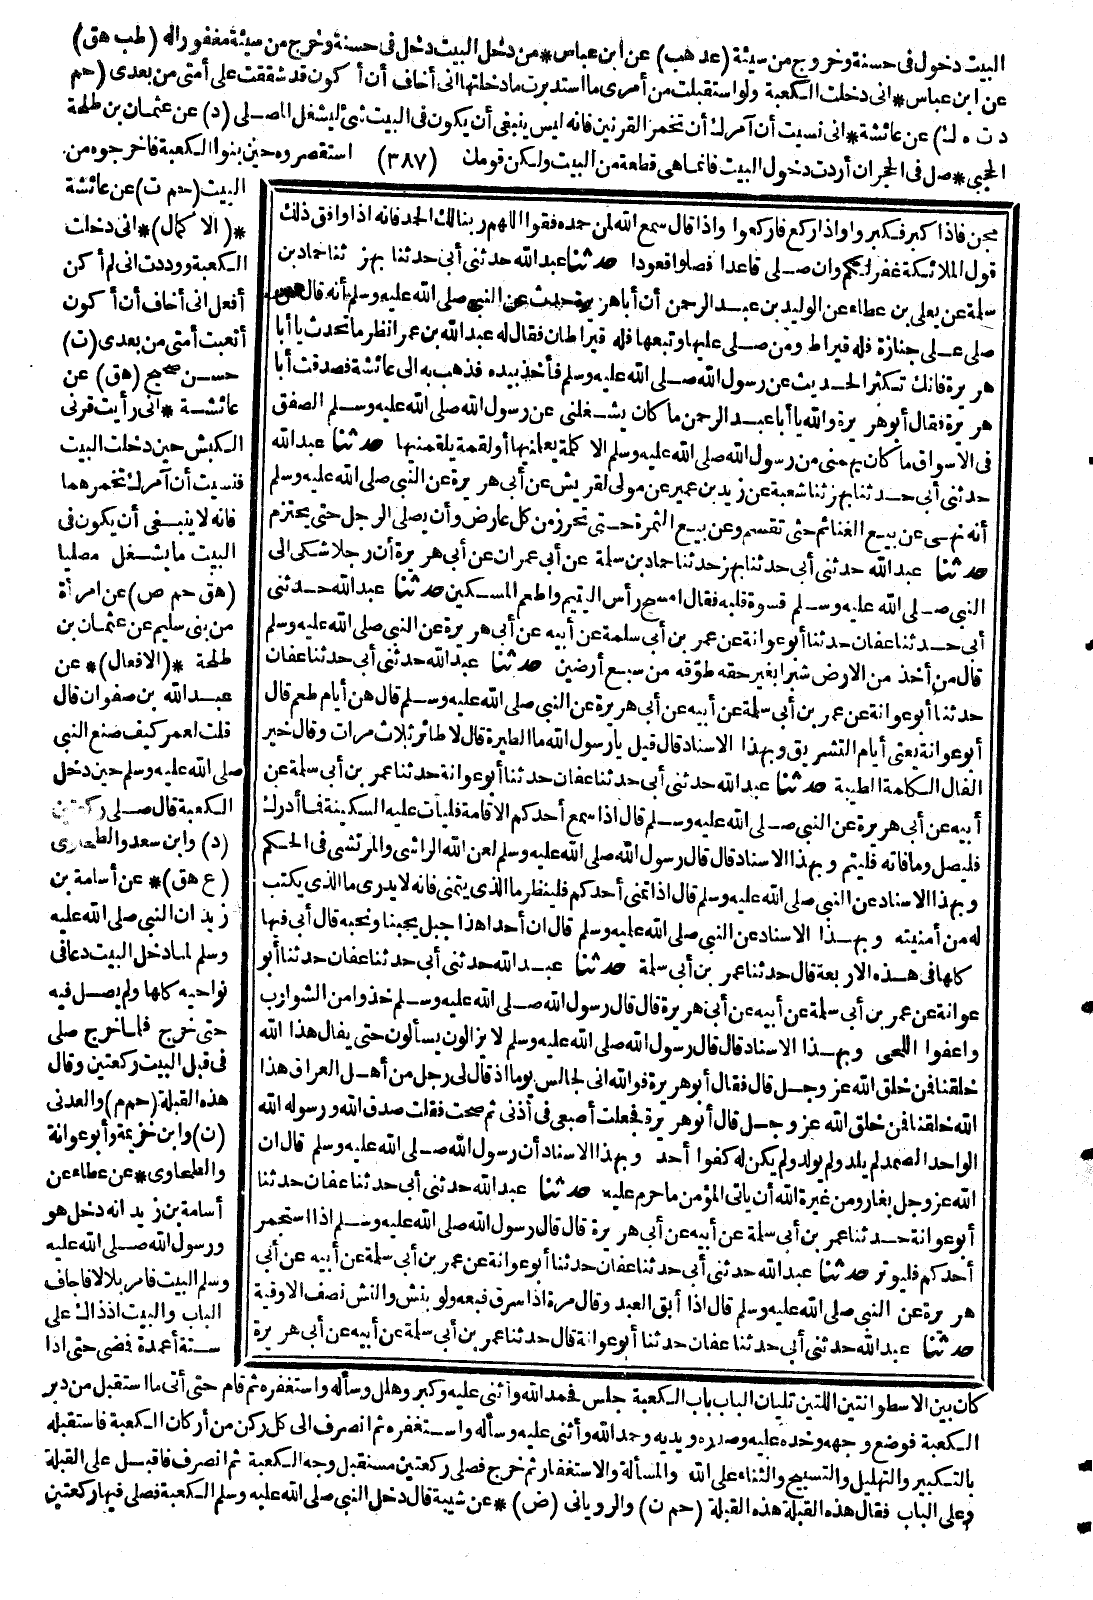 البيت دخول فى حسنة وخروج من سيئة (عد هب) عن ابن عباس * من دخل البيت دخل فى حسنة وخرج من سيئة مغفورا له (طب هق)
عن ابن عباس * انى دخلت الكعبة ولو استقبلت من أمرى ما استدبرت ما دخلتها انى أخاف أن أكون قد شققت على أمتى من بعدى (حم
د ت ه ك) عن عائشة * انى نسيت أن آمرك أن تخمر القرنين فانه ليس ينبغى أن يكون فى البيت شئ يشغل المصلى (د) عن عثمان بن طلحة
الحجبى * صل فى الحجر ان أردت دخول البيت فانما هى قطعة من البيت ولكن قومك (٣٨٧) استقصروه حين بنوا الكعبة فاخرجوه من
البيت (حم ت) عن عائشة
* (الاكمال) * انى دخلت
الكعبة ووددت انى لم أكن
أفعل انى أخاف أن أكون
أتعبت أمتى من بعدى (ت)
حسن صحيح (هق) عن
عائشة * انى رأيت قرنى
الكبش حين دخلت البيت
فنسيت أن آمرك تخمرهما
فانه لا ينبغى أن يكون فى
البيت ما يشغل مصليا
(هق حم ص) عن امرأة
من بنى سليم عن عثمان بن
طلحة * (الافعال) * عن
عبد الله بن صفوان قال
قلت لعمر كيف صنع النبى
صلى الله عليه وسلم حين دخل
الكعبة قال صلى ركعتين
(د) وابن سعد والطحاوى
(ع هق) * عن أسامة بن
زيد ان النبى صلى الله عليه
وسلم لما دخل البيت دعا فى
نواحيه كلها ولم يصل فيه
حتى خرج فلما خرج صلى
فى قبل البيت ركعتين وقال
هذه القبلة (حم م) والعدنى
(ن) وابن خزيمة وأبو عوانة
والطحاوى * عن عطاء عن
أسامة بن زيد انه دخل هو
ورسول الله صلى الله عليه
وسلم البيت فامر بلالا فاجاف
الباب والبيت اذ ذاك على
ستة أعمدة فمضى حتى اذا
مجن فاذا كبر فكبروا واذا ركع فاركعوا واذا قال سمع الله لمن حمده فقولوا اللهم ربنا لك الحمد فانه اذا وافق ذلك
قول الملائكة غفر لكم وان صلى قاعدا فصلوا قعودا حدثنا عبد الله حدثنى أبى حدثنا بهز ثنا حماد بن
سلمة عن يعلى بن عطاء عن الوليد بن عبد الرحمن أن أبا هريرة حدث عن النبى صلى الله عليه وسلم أنه قال من
صلى على جنازة فله قيراط ومن صلى عليها وتبعها فله قيراطان فقال له عبد الله بن عمر انظر ما تحدث يا أبا
هريرة فانك تكثر الحديث عن رسول الله صلى الله عليه وسلم فأخذ بيده فذهب به الى عائشة فصدقت أبا
هريرة فقال أبو هريرة والله يا أبا عبد الرحمن ما كان يشغلنى عن رسول الله صلى الله عليه وسلم الصفق
فى الاسواق ما كان يهمنى من رسول الله صلى الله عليه وسلم الا كلمة يعلمنيها أو لقمة يلقمنيها حدثنا عبد الله
حدثنى أبى حدثنا بهز ثنا شعبة عن زيد بن عمير عن مولى لقريش عن أبى هريرة عن النبى صلى الله عليه وسلم
أنه نهى عن بيع الغنائم حتى تقسم وعن بيع الثمرة حتى تحرز من كل عارض وأن يصلى الرجل حتى يحتزم
حدثنا عبد الله حدثنى أبى حدثنا بهز حدثنا حماد بن سلمة عن أبى عمران عن أبى هريرة أن رجلا شكى الى
النبى صلى الله عليه وسلم قسوة قلبه فقال امسح رأس اليتيم واطعم المسكين حدثنا عبد الله حدثنى
أبى حدثنا عفان حدثنا أبو عوانة عن عمر بن أبى سلمة عن أبيه عن أبى هريرة عن النبى صلى الله عليه وسلم
قال من أخذ من الارض شبرا بغير حقه طوّقه من سبع أرضين حدثنا عبد الله حدثنى أبى حدثنا عفان
حدثنا أبو عوانة عن عمر بن أبى سلمة عن أبيه عن أبى هريرة عن النبى صلى الله عليه وسلم قال هن أيام طعم قال
أبو عوانة يعنى أيام التشريق وبهذا الاسناد قال قيل يا رسول الله ما الطيرة قال لا طائر ثلاث مرات وقال خير
الفال الكلمة الطيبة حدثنا عبد الله حدثنى أبى حدثنا عفان حدثنا أبو عوانة حدثنا عمر بن أبى سلمة عن
أبيه عن أبى هريرة عن النبى صلى الله عليه وسلم قال اذا سمع أحدكم الاقامة فليأت عليه السكينة فما أدرك
فليصل وما فاته فليتم وبهذا الاسناد قال قال رسول الله صلى الله عليه وسلم لعن الله الراشى والمرتشى فى الحكم
وبهذا الاسناد عن النبى صلى الله عليه وسلم قال اذا تمنى أحدكم فلينظر ما الذى يتمنى فانه لا يدرى ما الذى يكتب
له من أمنيته وبهذا الاسناد عن النبى صلى الله عليه وسلم قال ان أحدا هذا جبل يحبنا ونحبه قال أبى فيها
كلها فى هذه الاربعة قال حدثنا عمر بن أبى سلمة حدثنا عبد الله حدثنى أبى حدثنا عفان حدثنا أبو
عوانة عن عمر بن أبى سلمة عن أبيه عن أبى هريرة قال قال رسول الله صلى الله عليه وسلم خذوا من الشوارب
واعفوا اللحى وبهذا الاسناد قال قال رسول الله صلى الله عليه وسلم لا يزالون يسألون حتى يقال هذا الله
خلقنا فمن خلق الله عز وجل قال فقال أبو هريرة فوالله انى لجالس يوما اذ قال لى رجل من أهل العراق هذا
الله خلقنا فمن خلق الله عز وجل قال أبو هريرة فجعلت أصبعى فى أذنى ثم صحت فقلت صدق الله ورسوله الله
الواحد الصمد لم يلد ولم يولد ولم يكن له كفوا أحد وبهذا الاسناد أن رسول الله صلى الله عليه وسلم قال ان
الله عز وجل يغار ومن غيرة الله أن ياتى المؤمن ما حرم عليه حدثنا عبد الله حدثنى أبى حدثنا عفان حدثنا
أبو عوانة حدثنا عمر بن أبى سلمة عن أبيه عن أبى هريرة قال قال رسول الله صلى الله عليه وسلم اذا استجمر
أحدكم فليوتر حدثنا عبد الله حدثنى أبى حدثنا عفان حدثنا أبو عوانة عن عمر بن أبى سلمة عن أبيه عن أبى
هريرة عن النبى صلى الله عليه وسلم قال اذا أبق العبد وقال مرة اذا سرق فبعه ولو بنش والنش نصف الاوقية
حدثنا عبد الله حدثنى أبى حدثنا عفان حدثنا أبو عوانة قال حدثنا عمر بن أبى سلمة عن أبيه عن أبى هريرة
كان بين الاسطوانتين اللتين تليان الباب باب الكعبة جلس فحمد الله وأثنى عليه وكبر وهلل وسأله واستغفره ثم قام حتى أتى ما استقبل من دبر
الكعبة فوضع وجهه وخده عليه وصدره ويديه وحمد الله وأثنى عليه وسأله واستغفره ثم انصرف الى كل ركن من أركان الكعبة فاستقبله
بالتكبير والتهليل والتسبيح والثناء على الله والمسألة والاستغفار ثم خرج فصلى ركعتين مستقبل وجه الكعبة ثم انصرف فاقبل على القبلة
وعلى الباب فقال هذه القبلة هذه القبلة (حم ن) والرويانى (ض) * عن شيبة قال دخل النبى صلى الله عليه وسلم الكعبة فصلى فيها ركعتين